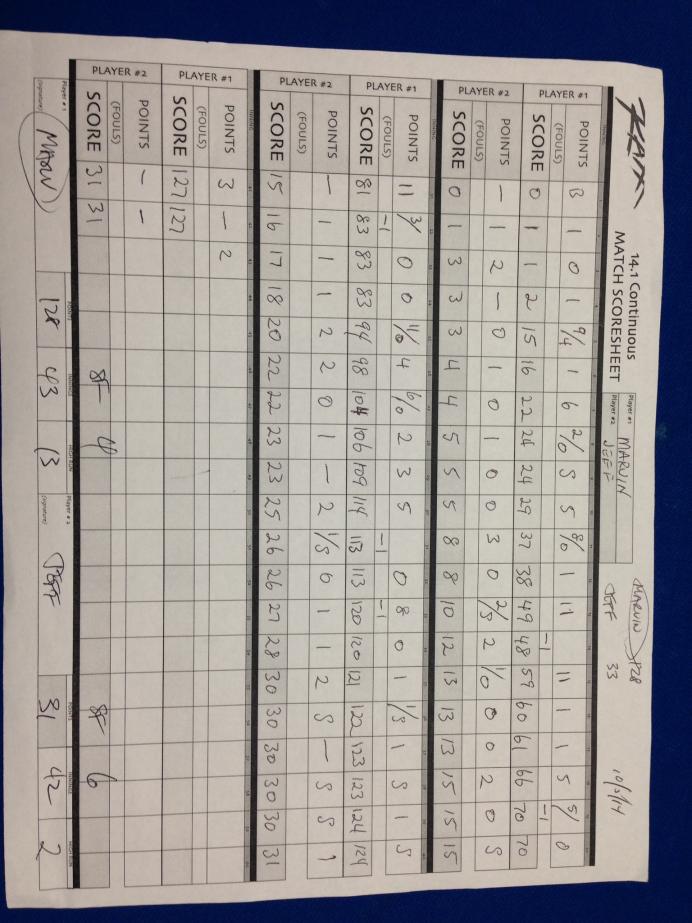 14.1 Continuous
MATCH SCORESHEET
Player #1 MARVIN
Player #2 JEFF
MARVIN 128
JEFF 33
10/5/14
PLAYER #1
POINTS B 1 0 1 9/4 1 6 2/0 S 5 8/0 1 11 11 1 1 5 5/ 0
(FOULS) -1 -1
SCORE 0 1 1 2 15 16 22 24 24 29 37 38 49 48 59 60 61 66 70 70
PLAYER #2
POINTS - 1 2 - 0 1 0 1 0 0 3 0 2/S 2 1/0 0 0 2 0 S
(FOULS)
SCORE 0 1 3 3 3 4 4 5 5 5 8 8 10 12 13 13 13 15 15 15
PLAYER #1
POINTS 11 3/ 0 0 11/0 4 6/0 2 3 5 0 8 0 1 1/S 1 S 1 S
(FOULS) -1 -1 -1
SCORE 81 83 83 83 94 98 104 106 109 114 113 113 120 120 121 122 123 123 124 124
PLAYER #2
POINTS - 1 1 1 2 2 0 1 - 2 1/S 0 1 1 2 S - S S 1
(FOULS)
SCORE 15 16 17 18 20 22 22 23 23 25 26 26 27 28 30 30 30 30 30 31
PLAYER #1
POINTS 3 - 2
(FOULS)
SCORE 127 127
PLAYER #2
POINTS - -
(FOULS)
SCORE 31 31 8F 4 8F 6
Player #1 (signature) MARVN POINTS 128 INNINGS 43 HIGH RUN 13 Player #2 (signature) JEFF POINTS 31 INNINGS 42 HIGH RUN 2